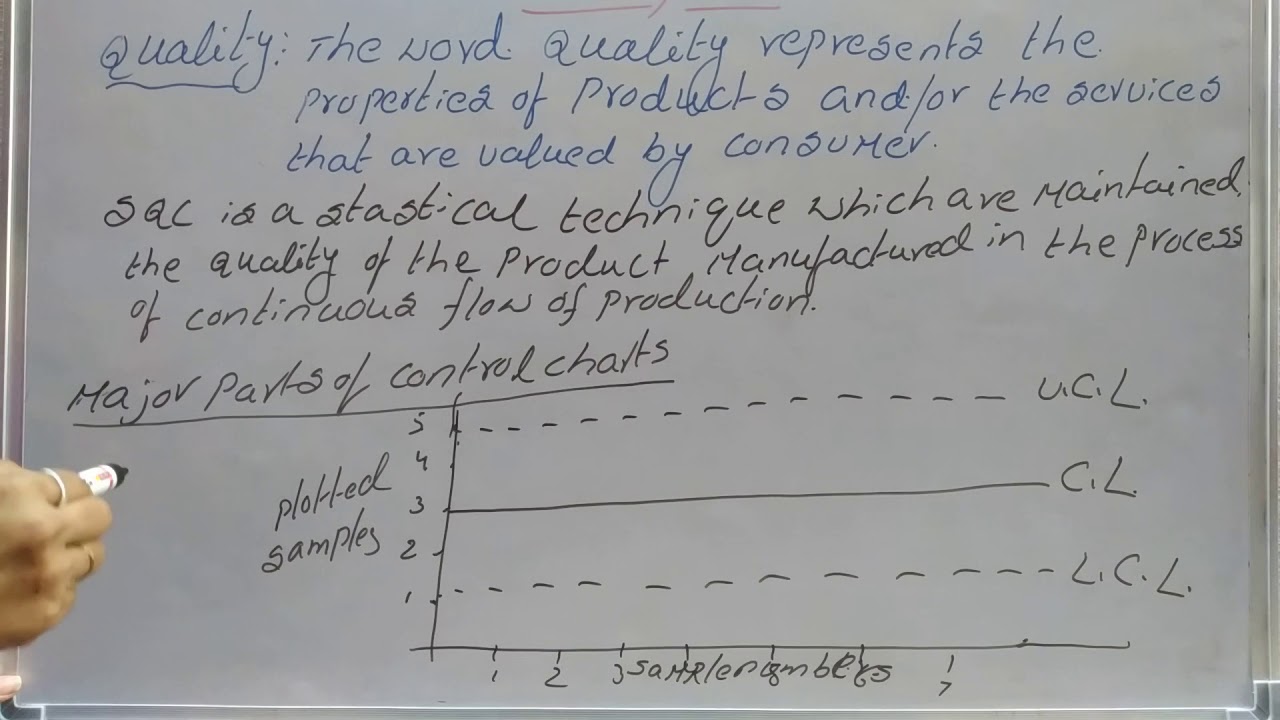 Quality: The word Quality represents the
properties of products and/or the services
that are valued by consumer.
SQC is a stastical technique which are maintained
the quality of the product manufactured in the process
of continuous flow of production.
Major parts of control charts
U.C.L.
5
4
plotted
samples
3
C.L.
2
1
L.C.L.
1 2 3 sample numbers 7